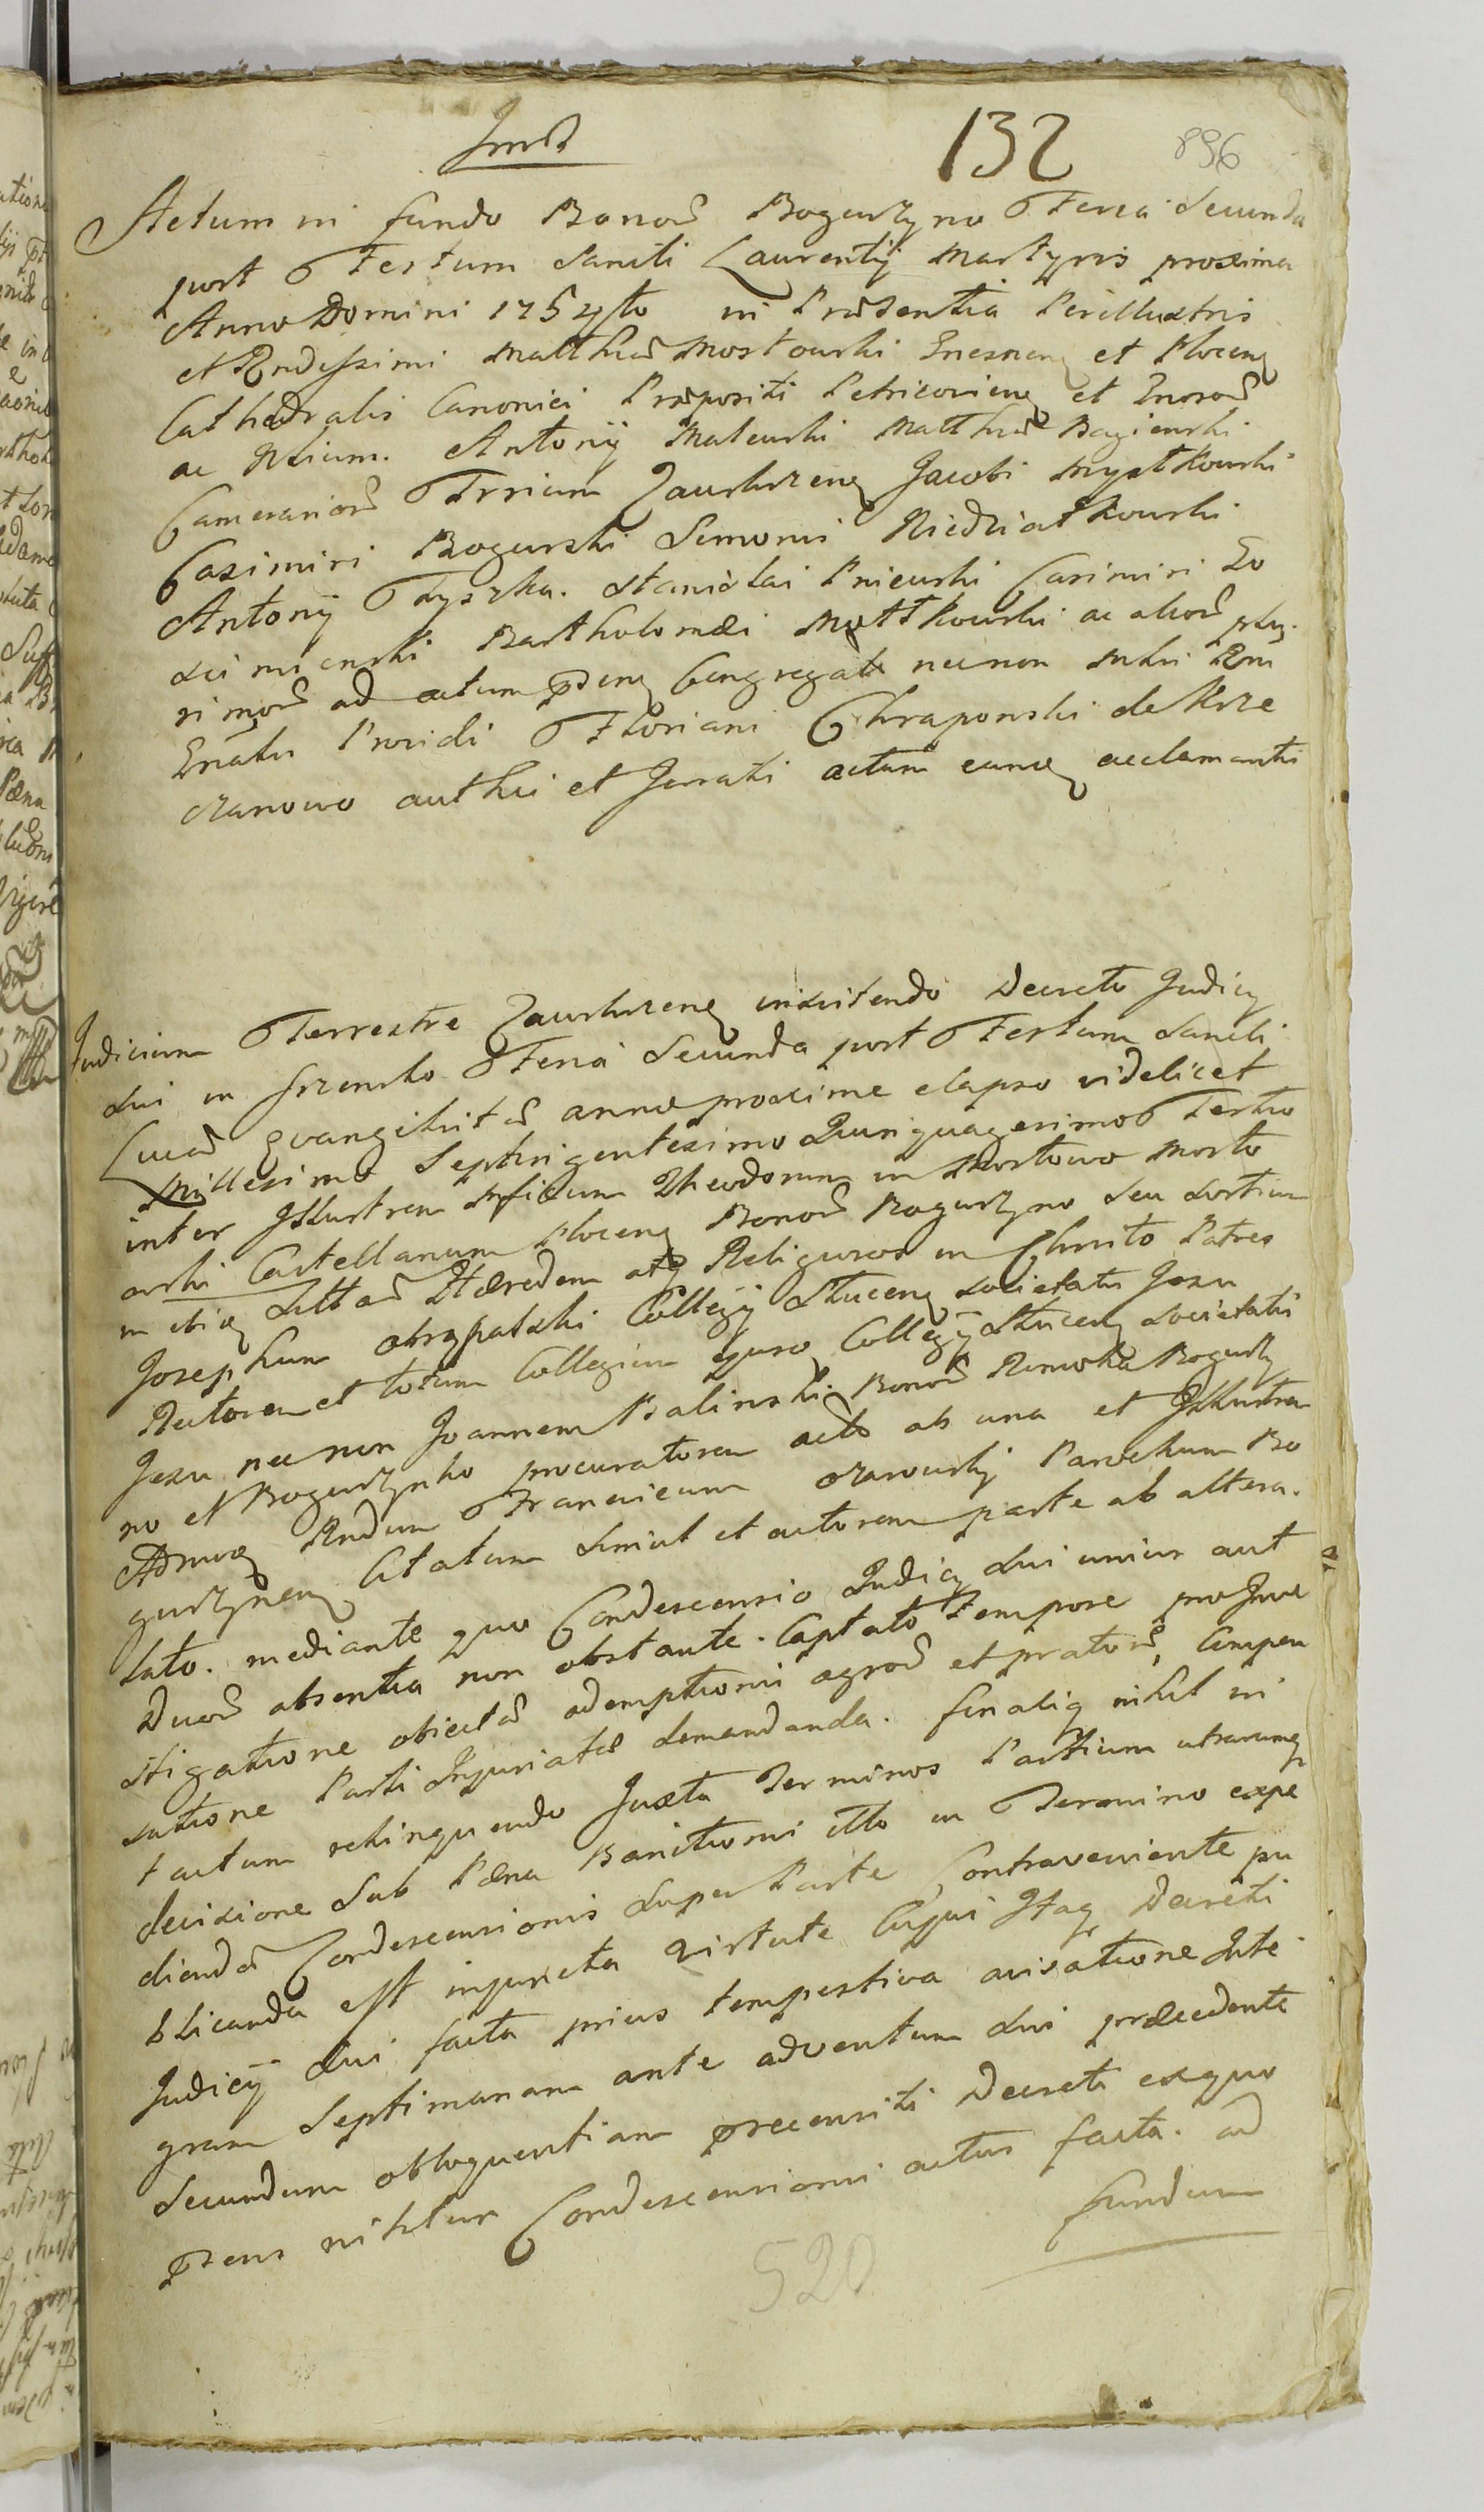 132
896
Actum in fundo Bonor̃ Bogurzyno Feria Secunda
post Festum Sancti Laurentij Martyris proxima
Anno Domini 1754to in Præsentia Perillustris
et Rndissimi Matthiæ Mostowski Gnesnen et Plocen
Cathedralis Canonici Præpositi Petricovien et Gnosor̃
ac Nlium. Antonij Malewski Matthiæ Bagienski
Camerarior̃ Trrium Zawkrzen Jacobi Mystkowski
Casimiri Bogurski Simonis Niedziałkowski
Antonij Tyszka. Stanislai Pniewski Casimiri Go
sci mienski Bartholomæi Mystkowski ac alior̃ plu
rimor̃ ad actum psen Congregat nec non Mtri Rni
Gnalis Providi Floriani Chraponski de Krze
czanowo authci et Jurati actum eund acclamanti
Judicium Terrestre Zawkrzen insistendo Decreto Judicij
sui in Srzensko Feria Secunda post Festum Sancti
Lucæ Evangelistæ anno proxime elapso videlicet
Millesimo Septingentesimo Quinquagesimo Tertio
inter Illustrem Mficum Theodorum in Mostowo Mosto
wski Castellanum Plocen Bonor̃ Bogurzyno seu Sortium
in ibiq Sittar̃ Hæredem atq Religiosos in Christo Patres
Josephum Obrąpalski Collegij Plocen Societatis Jesu
Rectorem et totum Collegium ejusq Collegij Plocen Societatis
Jesu nec non Joannem Balinski Bonor̃ Rumoka Bogurzy
no et Bogurzynko procuratorem acto ab una et Illustrem
Admoq Rndum Franciscum Ozarowskij Parochum Bo
gurzynen Citatum simul et actorem parte ab altera.
lato. mediante quo Condescensio Judicij sui unius aut
Duor̃ absentia non obstante. Captato tempore pro Inve
stigatione objectæ ademptionis agror̃ et prator̃, Compen
satione Parti Injuriatæ demandanda. finaliq nihil in
tactum relinquendo Juxta Terminos Partium utrarumq
decisione sub Pæna Banitionis itto in Termino expe
diendæ Condescensionis super Parte Contraveniente pu
blicanda est injuncta virtute Cujus Itaq Decreti
Judicij sui facta prius tempestiva avisatione Inte
gram Septimanam ante adventum sui præcedente
Secundum obloquentiam præcensiti Decreti ex quo
psens nititur Condescensionis actus facta. ad
fundum
520